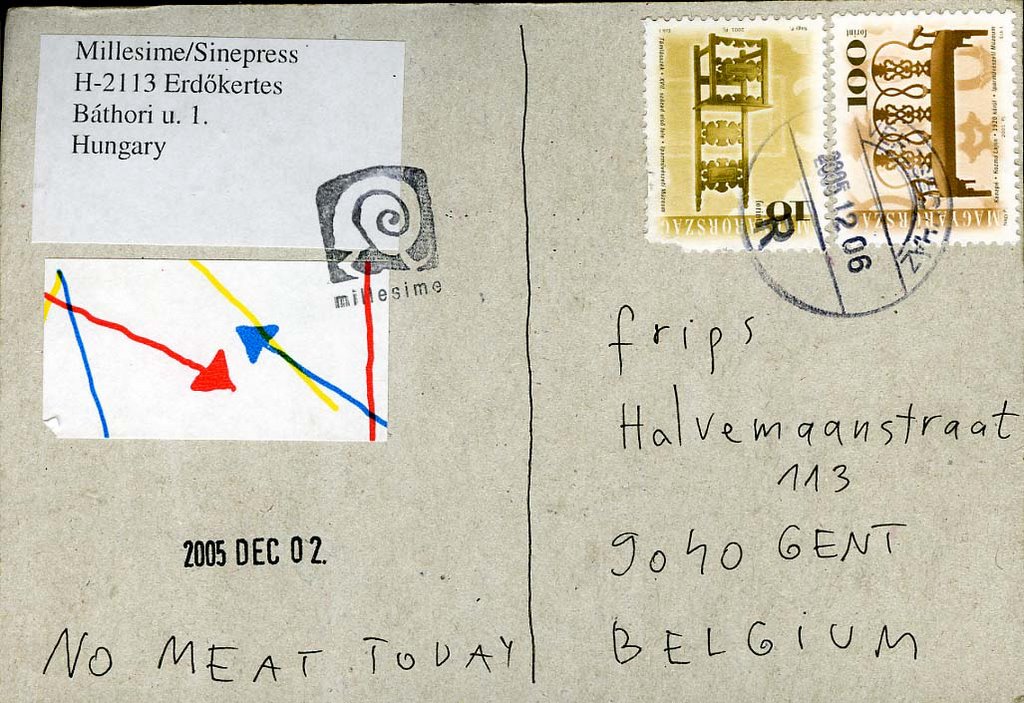 Millesime/Sinepress
H-2113 Erdőkertes
Báthori u. 1.
Hungary
millesime
2005 DEC 02.
NO MEAT TODAY
MAGYARORSZÁG
forint
100
forint
MAGYARORSZÁG
2005 12 06
frips
Halvemaanstraat
113
9040 GENT
BELGIUM